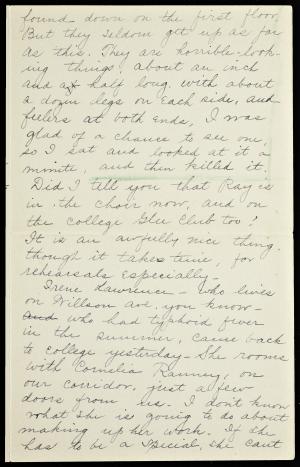 found down on the first floor,
But they seldom get up as far
as this. They are horrible look-
ing things, about an inch
and a half long, with about
a dozen legs on each side, and
feelers at both ends, I was
glad of a chance to see one,
so I sat and looked at it a
minute, and then killed it.
Did I tell you that Ray is
in the choir now, and on
the college Glee Club too!
It is an awfully nice thing,
though it takes time, for
rehearsals especially-
Irene Lawrence - who lives
on Willson ave, you know-
and who had typhoid fever
in the summer, came back
to college yesterday- She rooms
with Cornelia Ranney, on
our corridor, just a few
doors from us. I don't know
what she is going to do about
making up her work. If she
has to be a special, she can't